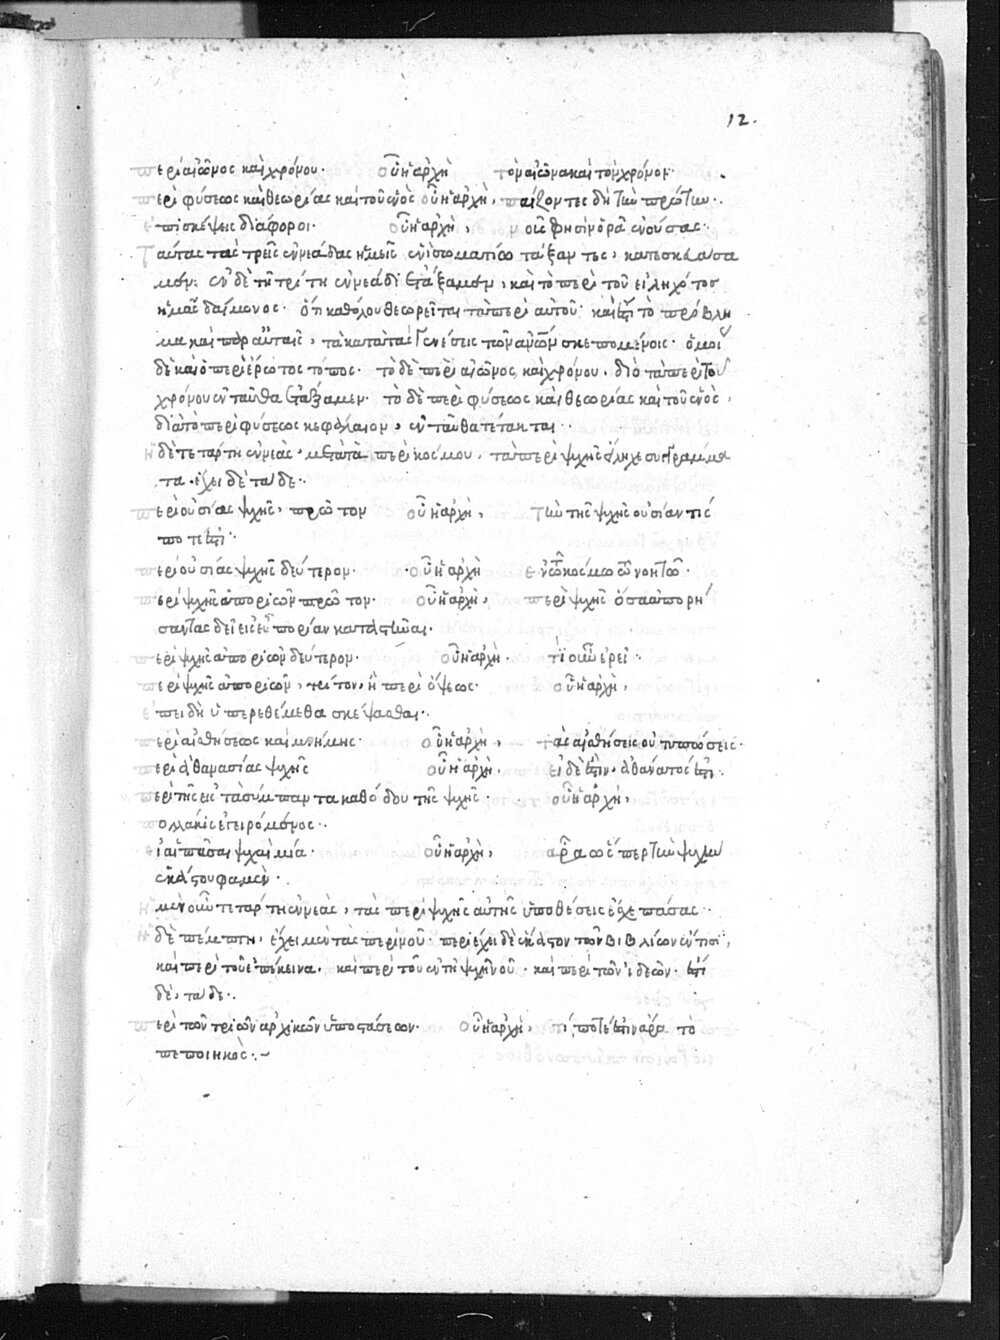 12.
περὶ αἰῶνος καὶ χρόνου· οὗ ἡ ἀρχὴ τὸν αἰῶνα καὶ τὸν χρόνον·
περὶ φύσεως καὶ θεωρίας καὶ τοῦ ἑνὸς οὗ ἡ ἀρχὴ, παίζοντες δὴ τὴν πρώτην·
ἐπισκέψεις διάφοροι· οὗ ἡ ἀρχὴ, νοῦς φησὶν ὁρᾶ ἐνούσας·
Ταύτας τὰς τρεῖς ἐννεάδας ἡμεῖς ἐν ἑνὶ σωματίω τάξαντες, κατεσκευάσα
μεν· ἐν δὲ τῆ τρίτη ἐννεάδι ἐτάξαμεν, καὶ τὸ περὶ τοῦ εἰληχότος
ἡμᾶς δαίμονος· ὅτι καθόλου θεωρεῖται τὰ περὶ αὐτοῦ· καὶ ἔστι τὸ πρόβλη
μα καὶ παρ' αὐταῖς, τὰ κατὰ τὰς γενέσεις τῶν ἀνῶν σκεπομένοις· ὅμοι
δὲ καὶ ὁ περὶ ἔρωτος τόπος· τὸ δὲ περὶ αἰῶνος καὶ χρόνου, διὰ τὰ περὶ τοῦ
χρόνου ἐνταῦθα ἐτάξαμεν· τὸ δὲ περὶ φύσεως καὶ θεωρίας καὶ τοῦ ἑνὸς,
διὰ τὸ περὶ φύσεως κεφάλαιον, ἐνταῦθα τέτακται·
Ἡ δὲ τετάρτη ἐννεὰς, μετὰ τὰ περὶ κόσμου, τὰ περὶ ψυχῆς εἴληχε συγγράμμα
τα· ἔχει δὲ τάδε·
περὶ οὐσίας ψυχῆς, πρῶτον οὗ ἡ ἀρχὴ, τὴν τῆς ψυχῆς οὐσίαν τίς
ποτέ ἐστι·
περὶ οὐσίας ψυχῆς δεύτερον· οὗ ἡ ἀρχὴ ἐν τῶ κόσμω τῶ νοητῶ·
περὶ ψυχῆς ἀποριῶν πρῶτον· οὗ ἡ ἀρχὴ, περὶ ψυχῆς ὅσα ἀπορή
σαντας δεῖ εἰς εὐπορίαν καταστῆναι·
περὶ ψυχῆς ἀποριῶν δεύτερον· οὗ ἡ ἀρχὴ· τί οὖν ἐρεῖ·
περὶ ψυχῆς ἀποριῶν, τρίτον, ἢ περὶ ὄψεως· οὗ ἡ ἀρχὴ,
ἐπειδὴ ὑπερεθέμεθα σκέψασθαι·
περὶ αἰσθήσεως καὶ μνήμης· οὗ ἡ ἀρχὴ, τὰς αἰσθήσεις οὐ τυπώσεις·
περὶ ἀθανασίας ψυχῆς οὗ ἡ ἀρχὴ· εἰ δέ ἐστιν ἀθάνατός ἐστι·
περὶ τῆς εἰς τὰ σύμπαντα καθόδου τῆς ψυχῆς· οὗ ἡ ἀρχὴ,
πολλάκις ἐγειρόμενος·
ἰ αἱ πᾶσαι ψυχαὶ μία· οὗ ἡ ἀρχὴ, ἆρα ὥσπερ τὴν ψυχὴν
ἑκάστου φαμὲν·
μὲν οὖν τετάρτη ἐννεὰς, τὰς περὶ ψυχῆς αὐτῆς ὑποθέσεις ἔχε πάσας·
Ἡ δὲ πέμπτη, ἔχει μὲν τὰς περὶ νοῦ· περιέχει δὲ ἕκαστον τῶν βιβλίων ἔν τισι,
καὶ περὶ τοῦ ἐπέκεινα, καὶ περὶ τοῦ ἐν τῆ ψυχῆ νοῦ· καὶ περὶ τῶν ἰδεῶν· ἔστι
δὲ, τάδε·
περὶ τῶν τριῶν ἀρχικῶν ὑποστάσεων· οὗ ἡ ἀρχὴ, τί ποτέ ἐστιν ἄρα τὸ
πεποιηκὸς·